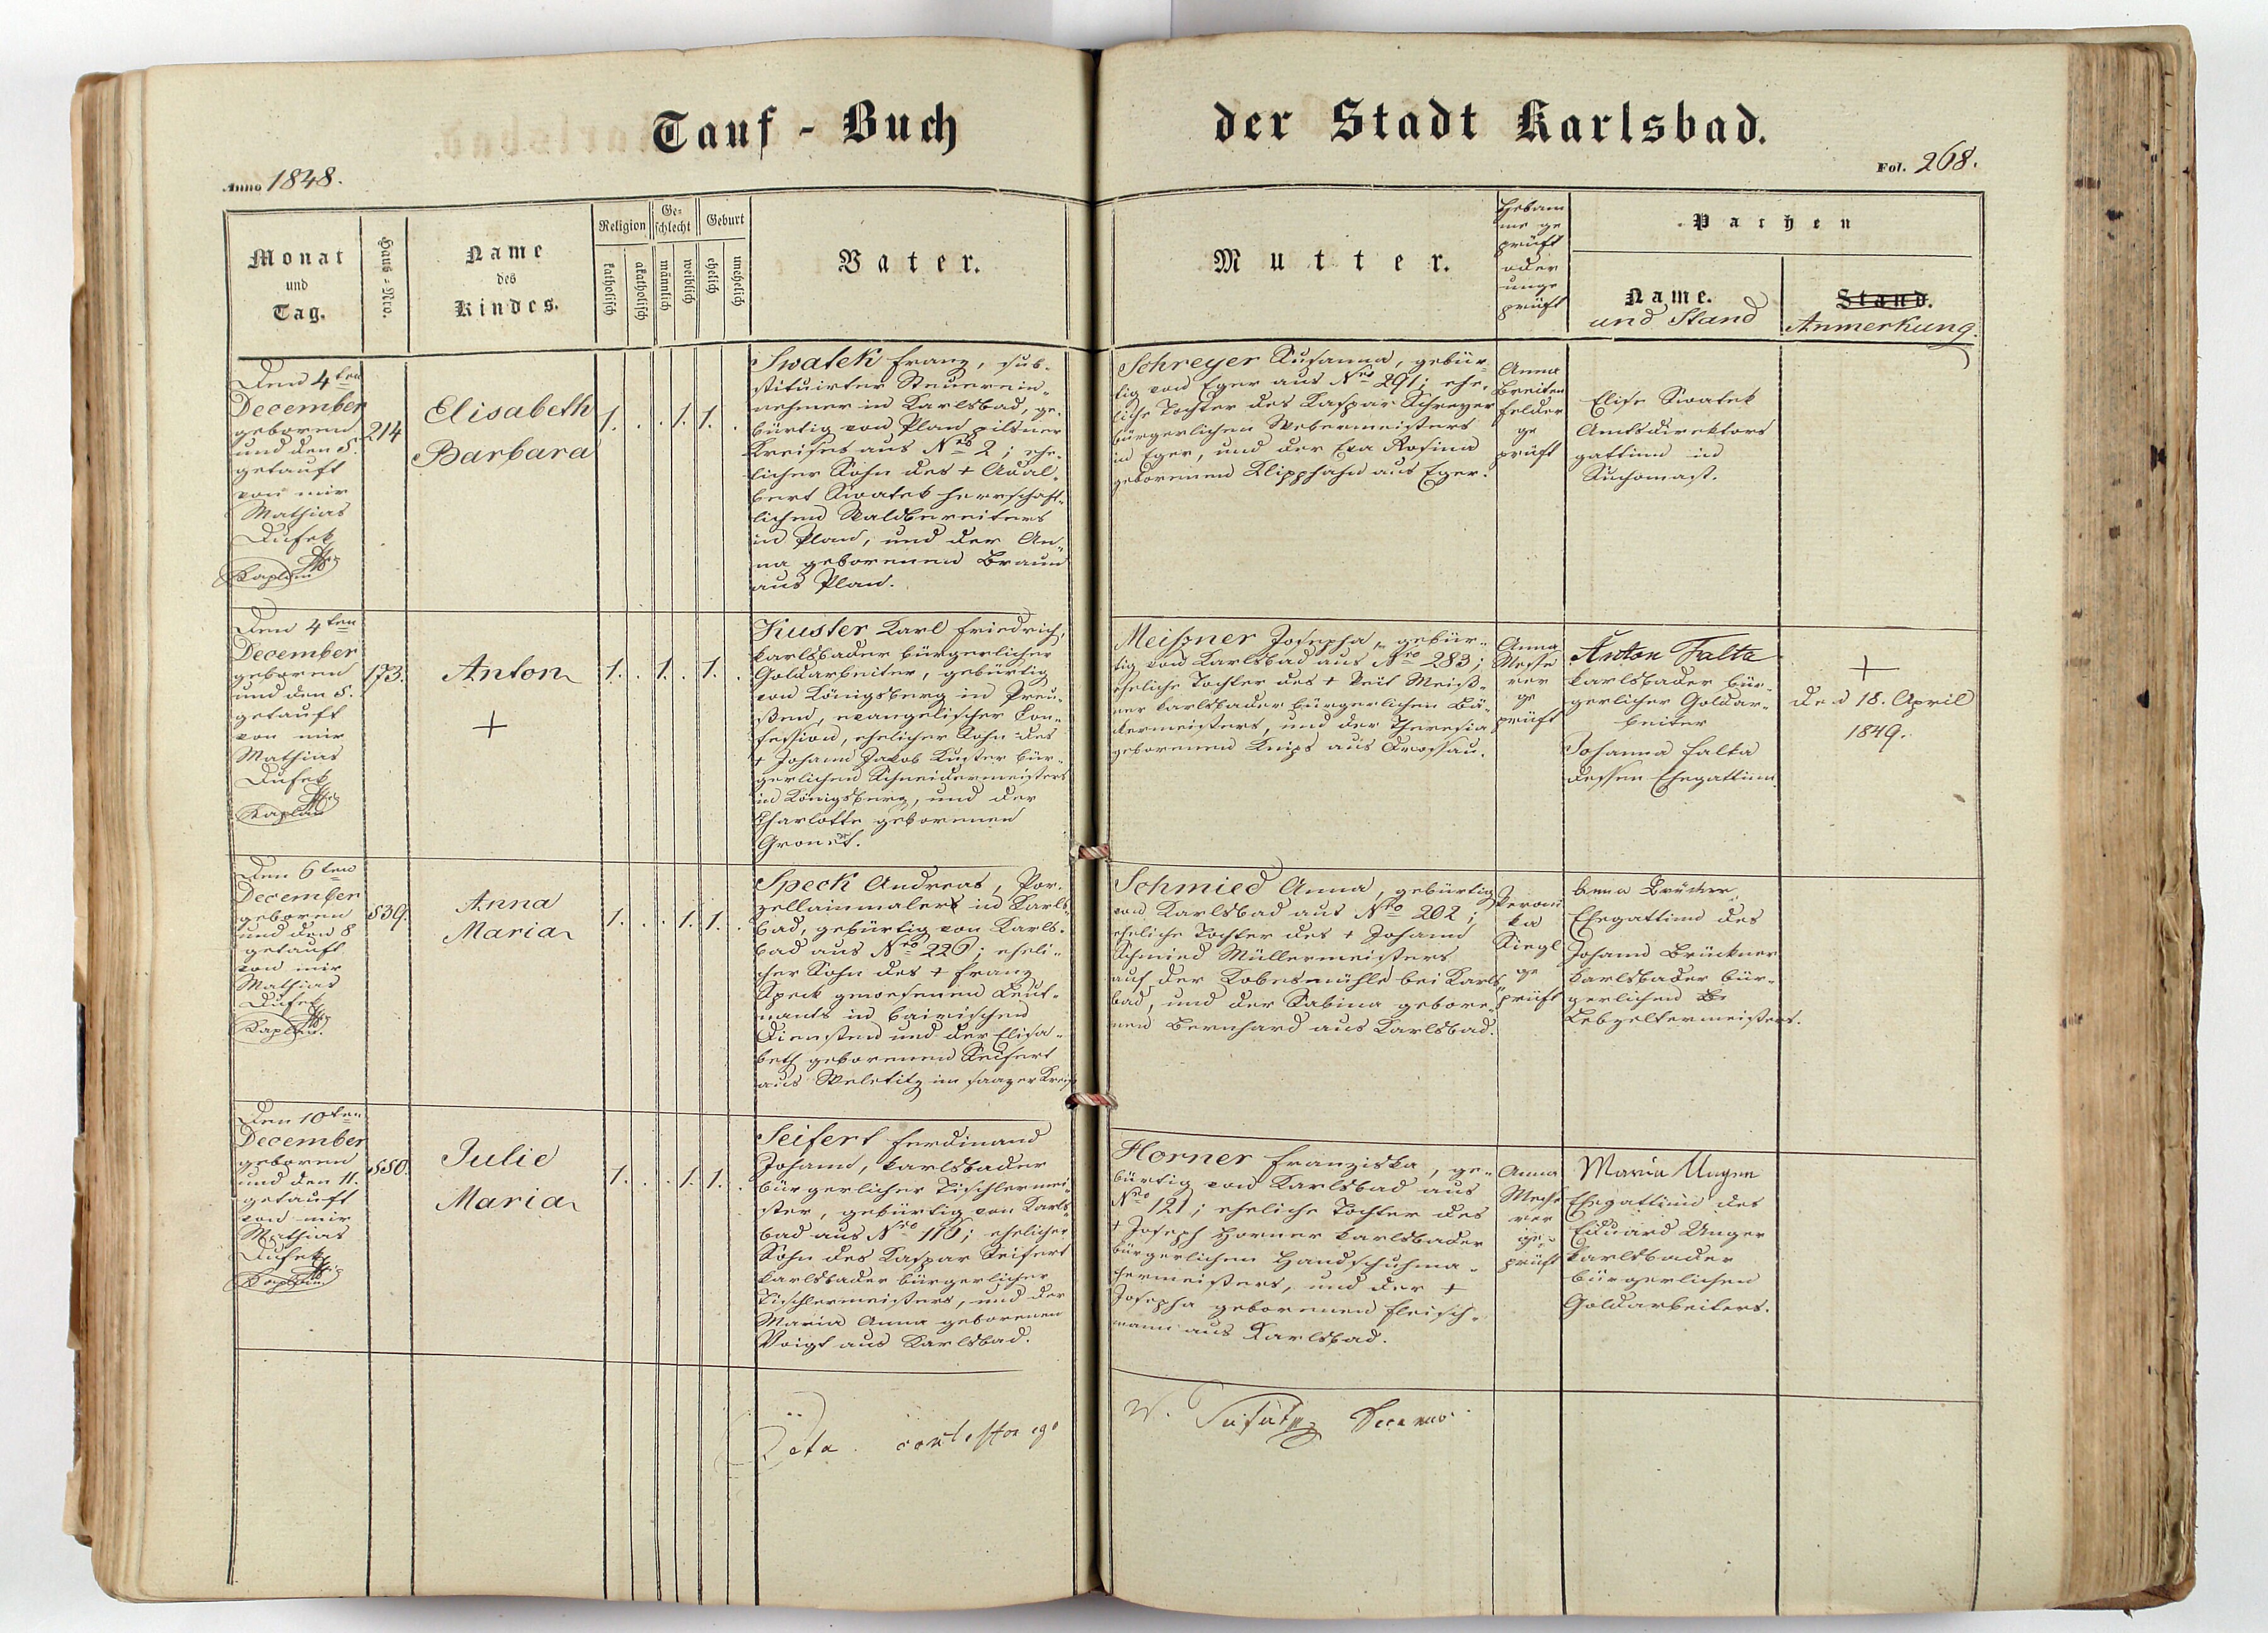 Tauf - Buch der Stadt Karlsbad.
Anno 1848.
Fol. 268.
Monat
und
Tag.
Haus-Nro.
Name
des
Kindes.
Religion
katholisch
akatholisch
Ge-
schlecht
männlich
weiblich
Geburt
ehelich
unehelich
Vater.
Mutter.
Hebam
me ge
prüft
oder
unge
prüft
Pathen
Name.
und Stand
Stand.
Anmerkung.
Den 4ten
December
geboren
und den 8.
getauft
von mir
Mathias
Dufek
Kaplan
214
Elisabeth
Barbara
1. . . 1. 1. .
Swatek Franz, sub-
stituirter Steuerein-
nehmer in Karlsbad, ge-
bürtig von Plan pilsner
Kreises aus Nro 2; ehe-
licher Sohn des + Adal-
bert Swatek herrschaft-
lichen Waldbereiters
in Plan, und der An-
na geborenen Braun
aus Plan.
Schreyer Susanna, gebür-
tig von Eger aus Nro 291; ehe-
liche Tochter des Kaspar Schreyer
bürgerlichen Webermeisters
in Eger, und der Eva Rosina
geborenen Klipphahn aus Eger.
Anna
Breiten
felder
ge
prüft
Elise Swatek
Amtsdirektors
gattinn in
Suchomast.
Den 4ten
December
geboren
und den 8.
getauft
von mir
Mathias
Dufek
Kaplan
173.
Anton
+
1. . 1. . 1. .
Kuster Karl Friedrich,
karlsbader bürgerlicher
Goldarbeiter, gebürtig
von Königsberg in Preu-
ßen, evangelischer Con-
fession, ehelicher Sohn des
+ Johann Jakob Kuster bür-
gerlichen Schneidermeisters
in Königsberg, und der
Charlotte geborenen
Meißner Josepha, gebür-
tig von Karlsbad aus Nro 283;
eheliche Tochter des + Veit Meiß-
ner karlsbader bürgerlichen Bä-
ckermeisters, und der Theresia
geborenen Knips aus Drossau.
Anna
Messe
rer
ge
prüft
Anton Falta
karlsbader bür-
gerlicher Goldar-
beiter
Johanna Falta
dessen Ehegattinn
+
den 18. April
1849.
Den 6ten
December
geboren
und den 8
getauft
von mir
Mathias
Dufek
Kaplan.
839.
Anna
Maria
1. . . 1. 1. .
Speck Andreas, Por-
zellainmaler in Karls-
bad, gebürtig von Karls-
bad aus Nro 226; eheli-
cher Sohn des + Franz
Speck gewesenen Leut-
nants in bairischen
Diensten und der Elisa-
beth geborenen Seifert
aus Weletitz im saazer Kreise
Schmied Anna, gebürtig
von Karlsbad aus Nro 202;
eheliche Tochter des + Johann
Schmied Müllermeisters
auf der Kobesmühle bei Karls-
bad, und der Sabina gebore-
nen Bernhard aus Karlsbad.
Veroni
ka
Siegl
ge
prüft
Anna
Ehegattinn des
Johann Brückner
karlsbader bür-
gerlichen
Lebzeltermeisters.
Den 10ten
December
geboren
und den 11.
getauft
von mir
Mathias
Dufek
Kaplan
880.
Julie
Maria
1. . . 1. 1. .
Seifert Ferdinand
Johann, karlsbader
bürgerlicher Tischlermei-
ster, gebürtig von Karls-
bad aus Nro 116; ehelicher
Sohn des Kaspar Seifert
karlsbader bürgerlicher
Tischlermeisters, und der
Maria Anna geborenen
Voigt aus Karlsbad.
Horner Franziska, ge-
bürtig von Karlsbad aus
Nro 121; eheliche Tochter des
+ Joseph Horner karlsbader
bürgerlichen Handschuhma-
chermeisters, und der +
Josepha geborenen Fleisch-
mann aus Karlsbad.
Anna
Messe
rer
ge-
prüft
Maria Unger
Ehegattinn des
Eduard Unger
karlsbader
bürgerlichen
Goldarbeiters.